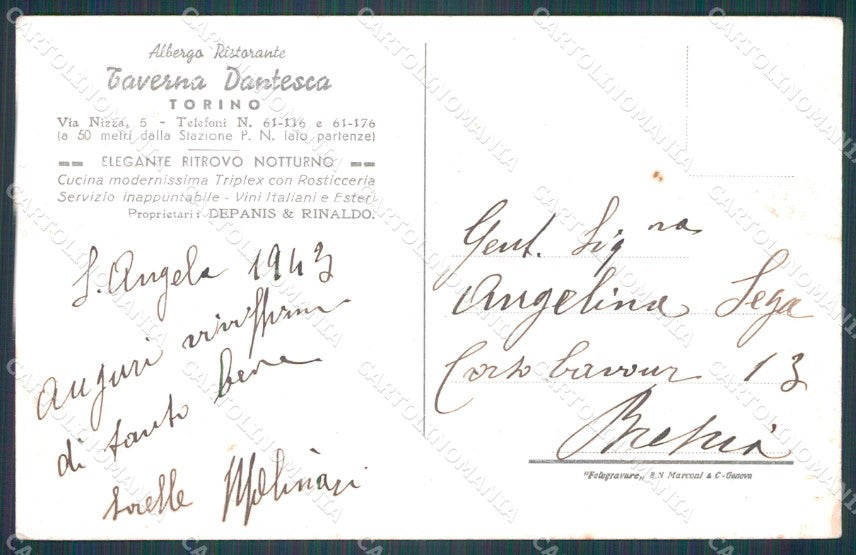 Albergo Ristorante
Taverna Dantesca
TORINO
Via Nizza, 5 - Telefoni N. 61-116 e 61-176
(a 50 metri dalla Stazione P. N. lato partenze)
ELEGANTE RITROVO NOTTURNO
Cucina modernissima Triplex con Rosticceria
Servizio inappuntabile - Vini Italiani e Esteri
Proprietari: DEPANIS & RINALDO.
S. Angela 1943
Auguri vivissimi
di tanto bene
sorelle Molinari
Gent. Sig.na
Angelina Sega
Corso Cavour 13
Brescia
"Fotogravure" S.N Marconi & C - Genova
CARTOLINOMANIA